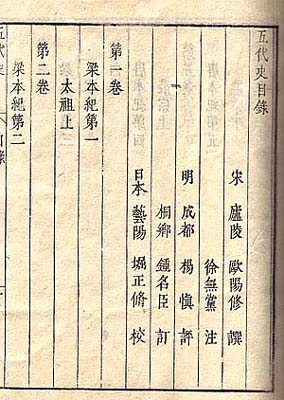 五代史目錄
宋 廬陵 歐陽修 撰
徐無黨 注
明 成都 楊慎 評
桐鄉 鍾名臣 訂
日本 藝陽 堀正脩 校
第一卷
梁本紀第一
太祖上
第二卷
梁本紀第二
五代史 目錄